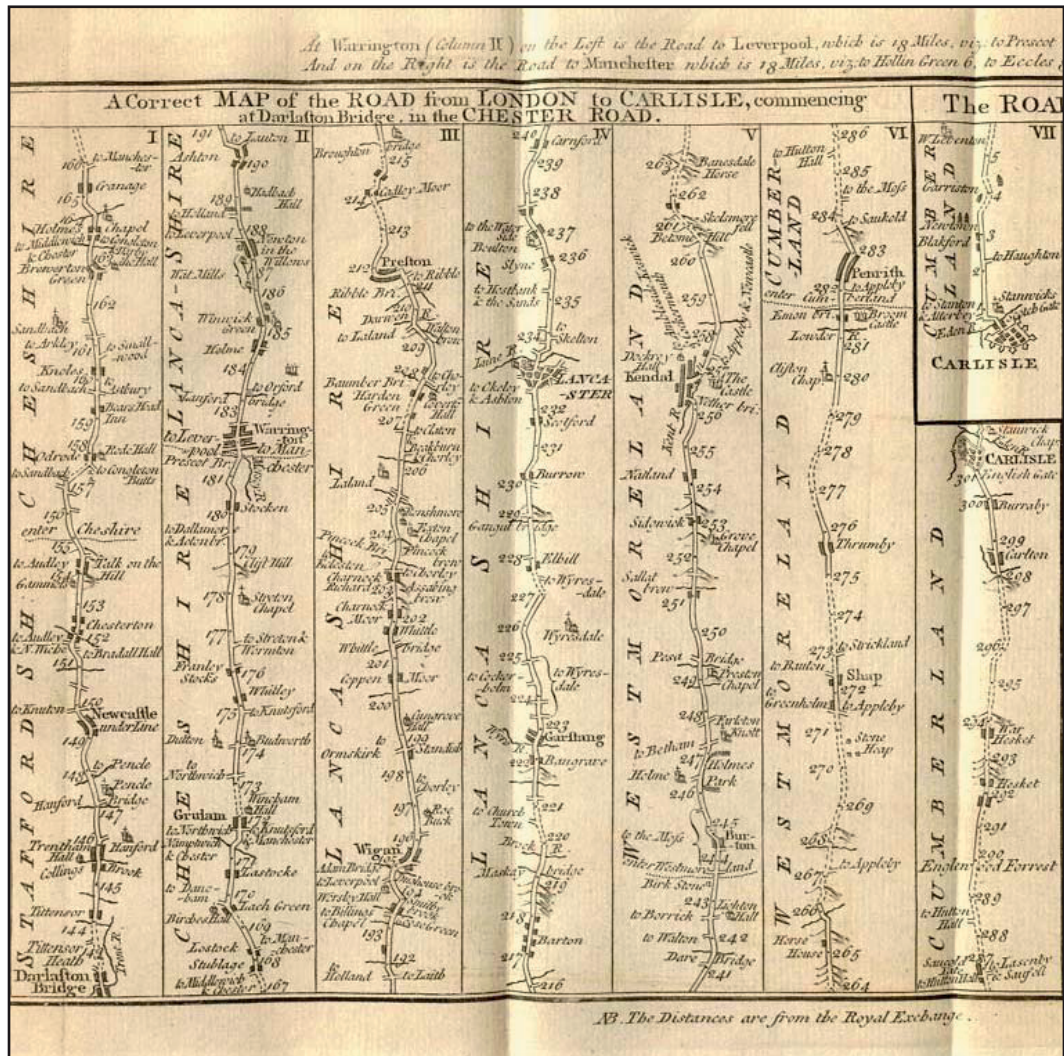 At Warrington (Column II) on the Left is the Road to Leverpool, which is 18 Miles, viz. to Prescot
And on the Right is the Road to Manchester which is 18 Miles, viz. to Hollin Green 6, to Eccles,
A Correct MAP of the ROAD from LONDON to CARLISLE, commencing
at Darlaston Bridge, in the CHESTER ROAD.
The ROAD
I
CHESHIRE
to Manches-
ter
166
Cranage
165
Holmes
Chapel
to Middlewich
& Chester
to Congleton
Brewerton
Green
Hall
162
Sandbach
to Arkley
161
to Small-
wood
Knoles
to Sandbach
to Astbury
Bears Head
Inn
159
158
Odrode
Rode Hall
to Sandbach
to Congleton
Butts
157
156
enter Cheshire
155
STAFFORDSH
to Audley
Talk on the
Hill
154
153
Chesterton
to Audley
152
to Bradall Hall
151
to Knuton
150
Newcastle
under Line
149
148
to Pencle
Pencle
Bridge
Hanford
147
146
Trentham
Hall
Hanford
Collings
Brook
145
Tittensor
144
Tittensor
Heath
Trent R.
Darlaston
Bridge
II
LANCASHIRE
191
to Lauton
Ashton
190
189
Hadbach
Hall
to Holland
to Leverpool
188
Newton
in the
Willows
Wat Mills
187
186
Winwick
Green
185
Holme
184
to Orford
Sanford
bridge
183
Warring-
ton
to Lever-
pool
to Man-
chester
Prescot Br.
181
CHESHIRE
180
Stocken
to Dallamere
& Acton br.
179
Clift Hill
178
Stretton
Chapel
177
to Streton &
Wermton
Franley
Stocks
176
Whitley
175
to Knutsford
Dutton
Budworth
174
to
Northwich
173
Wincham
Hall
Grulam
172
to Northwich
Namptwich
& Chester
to Knutsford
Manchester
171
Lastocke
170
to Dane-
bam
Lach Green
Birches Hall
169
Lostock
to Man-
chester
Stublage
168
to Middlewich
& Chester
167
III
LANCASHIRE
Broughton
bridge
215
Cadley Moor
214
213
212
Preston
to Ribble
Ribble Bri.
211
210
Darwen R.
Walton
brow
to Laland
209
208
to Cho-
rley
Baumber Bri.
Harden
Green
Hall
207
to Claton
206
Laland
205
204
Chapel
Pincock Bri.
Pincock
brow
to Eccleston
Charnock
Richard
203
to Chorley
Charnock
Moor
202
Whittle
bridge
Whittle
201
Coppen
Moor
200
Hall
to
Ormskirk
199
Standish
198
to
Chorley
197
Roe
Buck
196
Wigan
Adam Bridge
to Leverpool
Worsley Hall
194
to Billings
Chapel
Goose Green
193
192
to
Holland
to Laith
IV
LANCASHIRE
240
Carnford
239
238
to the Water
Side
237
Boulton
Slyne
236
to Hestbank
& the Sands
235
to
Skelton
234
Lune R.
LANCA-
STER
to Okeley
& Ashton
232
Scotford
231
Burrow
230
229
bridge
228
Elbill
to Wyres-
dale
227
226
Wyresdale
225
to Cocker-
holm
to Wyres-
dale
224
223
Wyre R.
Garstang
222
Bangrave
221
to Church
Town
220
Brock R.
bridge
219
218
Barton
217
216
V
WESTMORELAND
263
Banesdale
Horse
262
Skelsmore
fell
261
Hill
260
259
to Appleby & Newcastle
258
Dockrey
Hall
Kendal
The
Castle
Nether bri.
Kent R.
256
255
Natland
254
Sidgwick
253
Grove
Chapel
252
Sallat
brow
251
250
Pesa
Bridge
249
Preston
Chapel
248
Farleton
Knott
to Betham
247
Holmes
Holme
Park
246
245
to the Moss
Bur-
ton
244
enter Westmor-
land
Birk Stone
243
Hall
to Borrick
to Walton
242
Dare
Bridge
241
VI
CUMBER-
LAND
286
to Hutton
Hall
285
to the Moss
284
to Saukeld
283
Penrith
282
to Appleby
enter
Cum-
berland
Emon bri.
Broom
Castle
Lowder R.
281
Clifton
Chap.
280
WESTMORELAND
279
278
277
276
Thrumby
275
274
to Strickland
273
to Bauton
Shap
to
Greenholm
272
to Appleby
271
Stone
Heap
270
269
268
to Appleby
267
266
Horse
House
265
264
VII
CUMBER
LAND
5
Garriston
4
Newtown
3
Blakford
to Haughton
2
Stanton
& Atterbey
1
Stanwicks
Eden R.
Scotch Gate
CARLISLE
Stanwick
Chap.
Eden R.
CARLISLE
301
English Gate
CUMBERLAND
300
Burraby
299
Carlton
298
297
296
295
294
Hesket
293
Hesket
292
291
290
Englewood Forrest
289
to Hutton
Hall
288
287
to Lasenby
to Hutton Hall
N.B. The Distances are from the Royal Exchange.